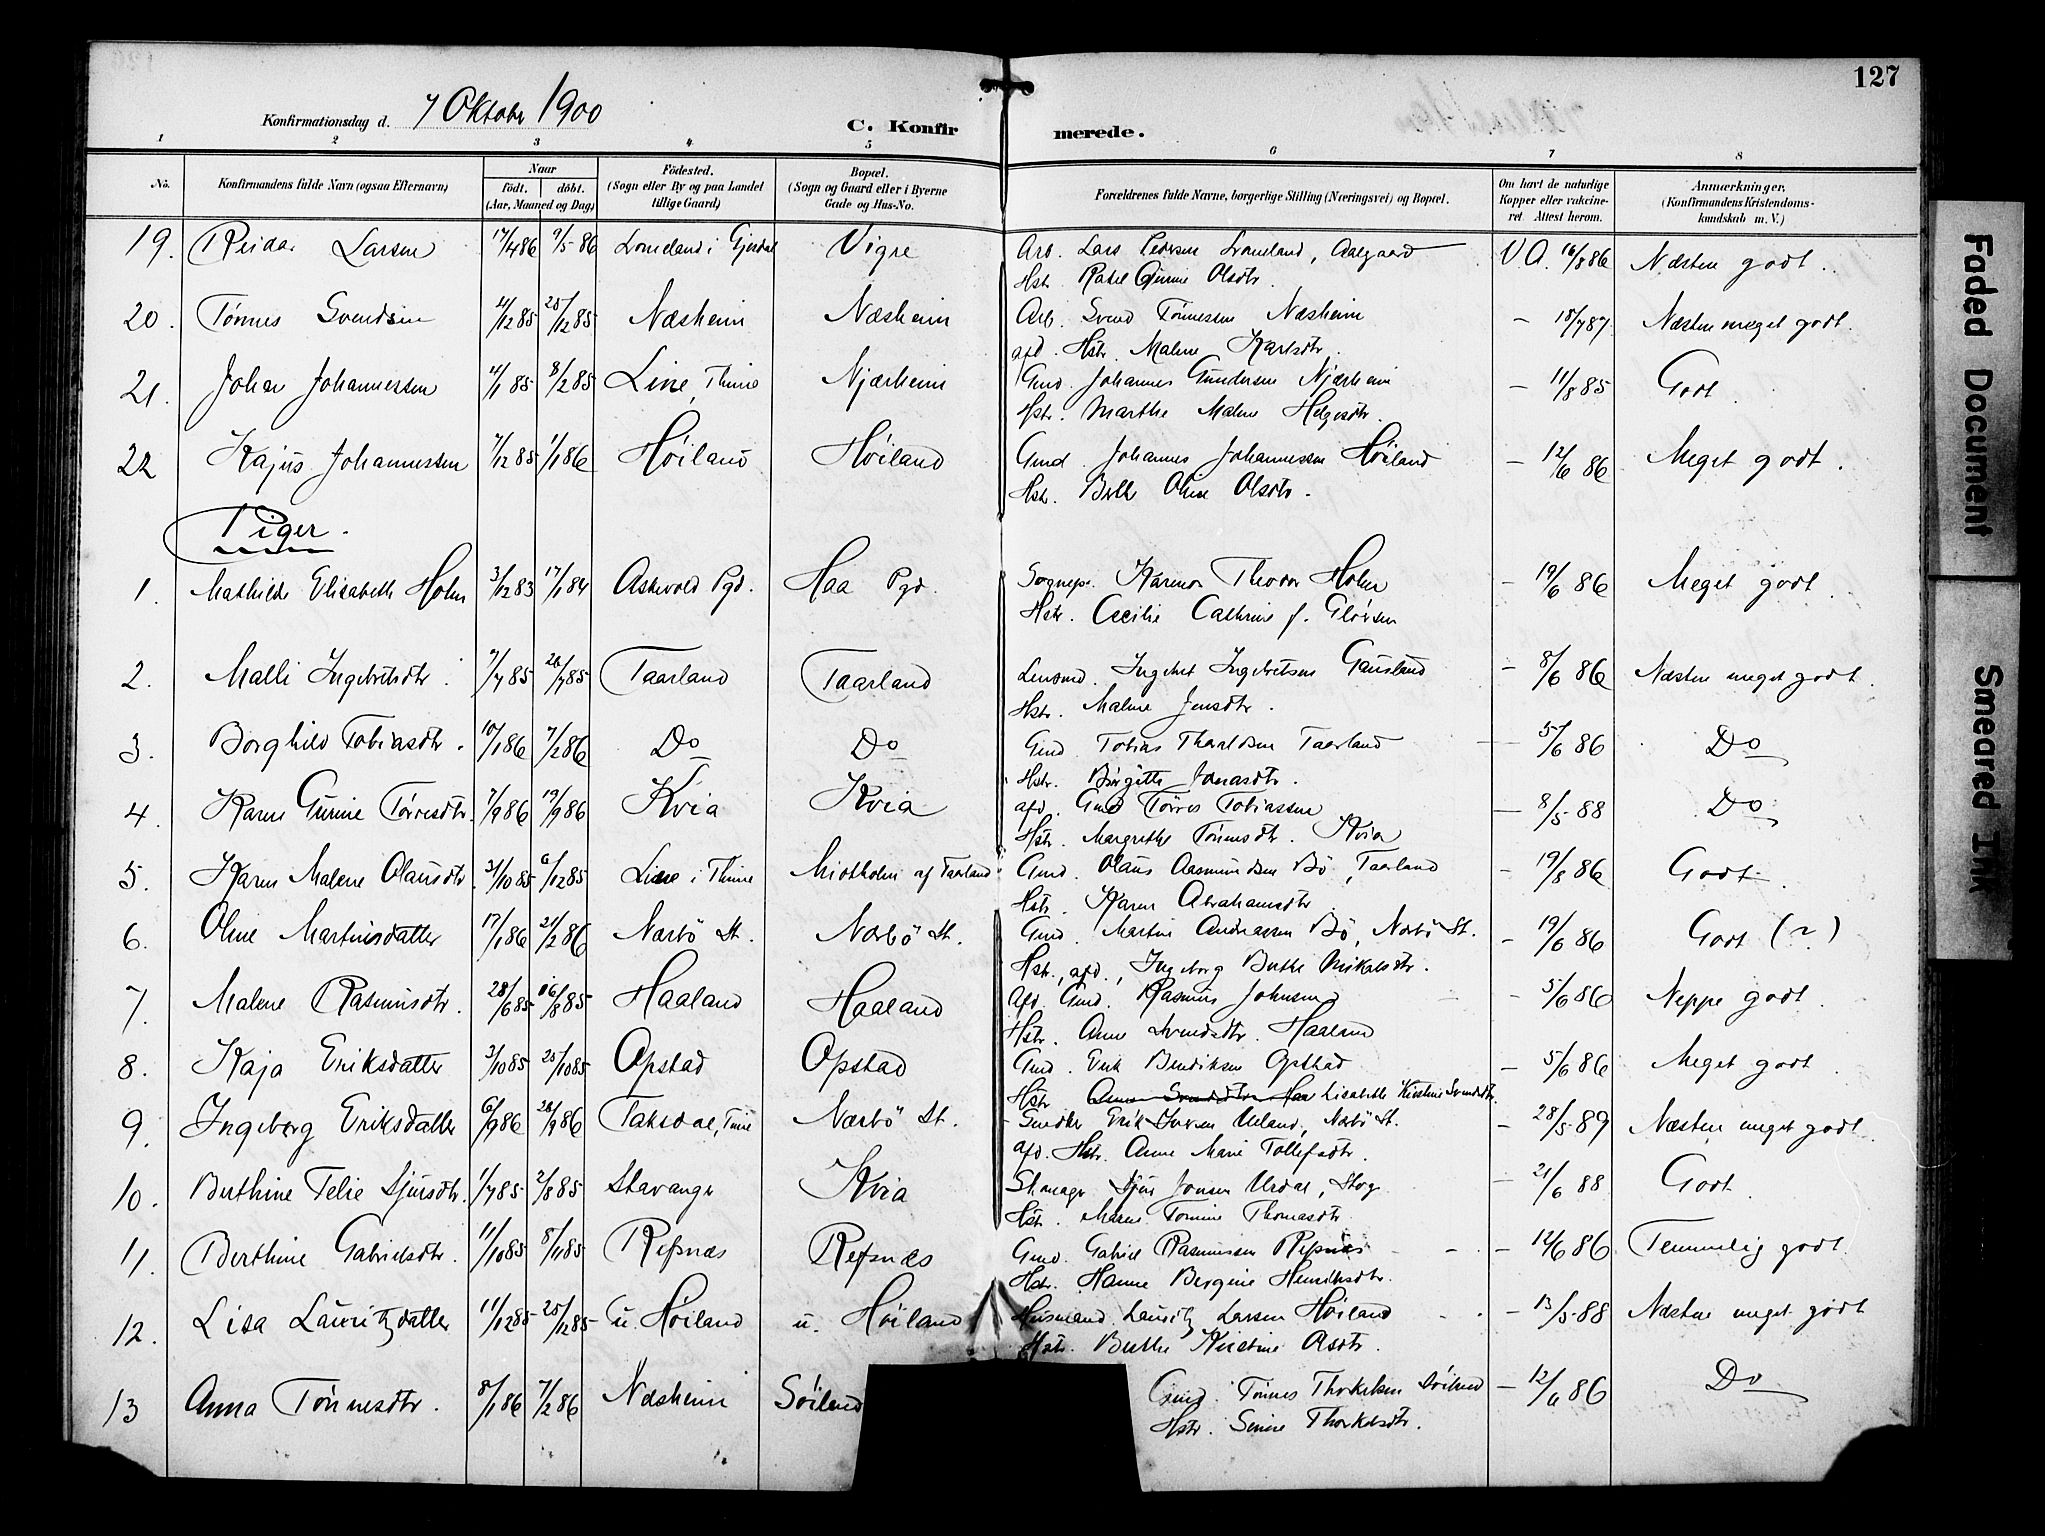 127
Konfirmationsdag d. 7 Oktober 1900
C. Konfirmerede.
1 2 3 4 5 6 7 8
No. Konfirmandens fulde Navn (ogsaa Efternavn) Naar født. døbt. (Aar, Maaned og Dag) Fødested. (Sogn eller By og paa Landet tillige Gaard) Bopæl. (Sogn og Gaard eller i Byerne Gade og Hus-No. Forældrenes fulde Navne, borgerlige Stilling (Næringsvei) og Bopæl. Om havt de naturlige Kopper eller vakcineret. Attest herom. Anmærkninger. (Konfirmandens Kristendomskundskab m. V.)
19. Reidar Larsen 17/4 86 9/5 86 i Gjesdal Vigre Arb. Lars Pedersen Aalgaard V A. 16/8 86 Næsten godt.
Hst. Rakel Gurine Olsdtr.
20. Tönnes Svendsen 4/12 85 25/12 85 Næsheim Næsheim Arb. Svend Tönnessen Næsheim – 18/7 87. Næsten meget godt.
afd. Hstr. Malene Karlsdtr.
21. Johan Johannessen 4/1 85 8/2 85 Line, Thime Njærheim Gmd. Johannes Gundersen Njærheim – 11/8 85 Godt.
Hstr. Marthe Malene Helgesdtr.
22 Kajus Johannessen 7/12 85 1/1 86 Höiland Höiland Gmd. Johannes Johannessen Höiland – 12/6 86 Meget godt.
Hstr. Berthe Oline Olsdtr.
Piger.
1. Mathilde Elisabeth Holm 3/12 83 17/1 84 Askvold Pgd. Haa Pgd. Sognepr. Theodor Holm – 19/6 86 Meget godt.
Hstr. Cecilie Cathrine f. Glörsen
2. Malli Ingebretsdtr. 7/7 85 26/7 85 Taarland Taarland Lensmd. Ingebret Ingebretsen Gausland – 8/6 86 Næsten meget godt.
Hstr. Malene Jensdtr.
3. Borghild Tobiasdtr. 10/1 86 7/2 86 Do Do Gmd. Tobias Theraldsen Taarland – 5/6 86 Do
Hstr. Birgitte Jonasdtr.
4. Karen Gurine Törresdtr. 7/9 86 19/9 86 Kvia Kvia afd. Gmd Törres Tobiassen – 8/5 88 Do
Hstr. Margrethe Tönnesdtr. Kvia
5. Karen Malene Olausdtr. 31/10 85 6/12 85 Line i Thime Motholen af Taarland Gmd. Olaus Aasmundsen Bö, Taarland – 19/8 86 Godt.
Hstr. Karen Abrahamsdtr
6. Oline Martinisdatter 17/1 86 21/2 86 Nærbö St. Nærbö St. Gmd. Martin Andreassen Bö, Nærbö St. – 19/6 86 Godt (~)
Hstr., afd., Ingeborg Berthe Mikalsdtr.
7. Malene Rasmusdtr. 28/6 85 16/8 85 Haaland Haaland Afd. Gmd. Rasmus Johnsen – 5/6 86 Neppe godt.
Hstr. Anne Svendsdtr. Haaland
8. Kaja Eriksdatter 3/10 85 25/10 85 Opstad Opstad Gmd. Erik Bendiksen Opstad – 5/6 86 Meget godt.
Hstr Anne Svendsdtr Haa Lisabeth Kirstine Svendsdtr.
9. Ingeborg Eriksdatter 6/9 86 26/9 86 Taksdal, Time Nærbö St. Snedker Erik Iversen Ueland, Nærbö St. – 28/5 89 Næsten meget godt.
afd. Hstr. Anne Marie Tollefsdtr.
10. Berthine Telie Sjursdtr. 1/7 85 2/8 85 Stavanger Kvia Skomager Sjur Jonsen Urdal, Stvg – 21/6 88 Godt.
Hstr. Maren Tomine Thomasdtr
11. Berthine Gabrielsdtr. 11/10 85 8/11 85 Refsnæs Refsnæs Gmd. Gabriel Rasmussen Refsnæs – 12/6 86 Temmelig godt
Hstr. Hanne Bergine Henriksdtr.
12. Lisa Lauritzdatter 11/12 85 25/12 85 u. Höiland u. Höiland Husmand Lauritz Larsen Höiland – 13/5 88 Næsten meget godt
Hstr. Berthe Kirstine Olsdtr.
13 Anna Tönnesdtr. 8/1 86 7/2 86 Næsheim Söiland Gmd. Tönnes Thorkelsen Söiland – 12/6 86 Do
Hstr. Serine Thorkelsdtr.
Faded Document
Smeared Ink